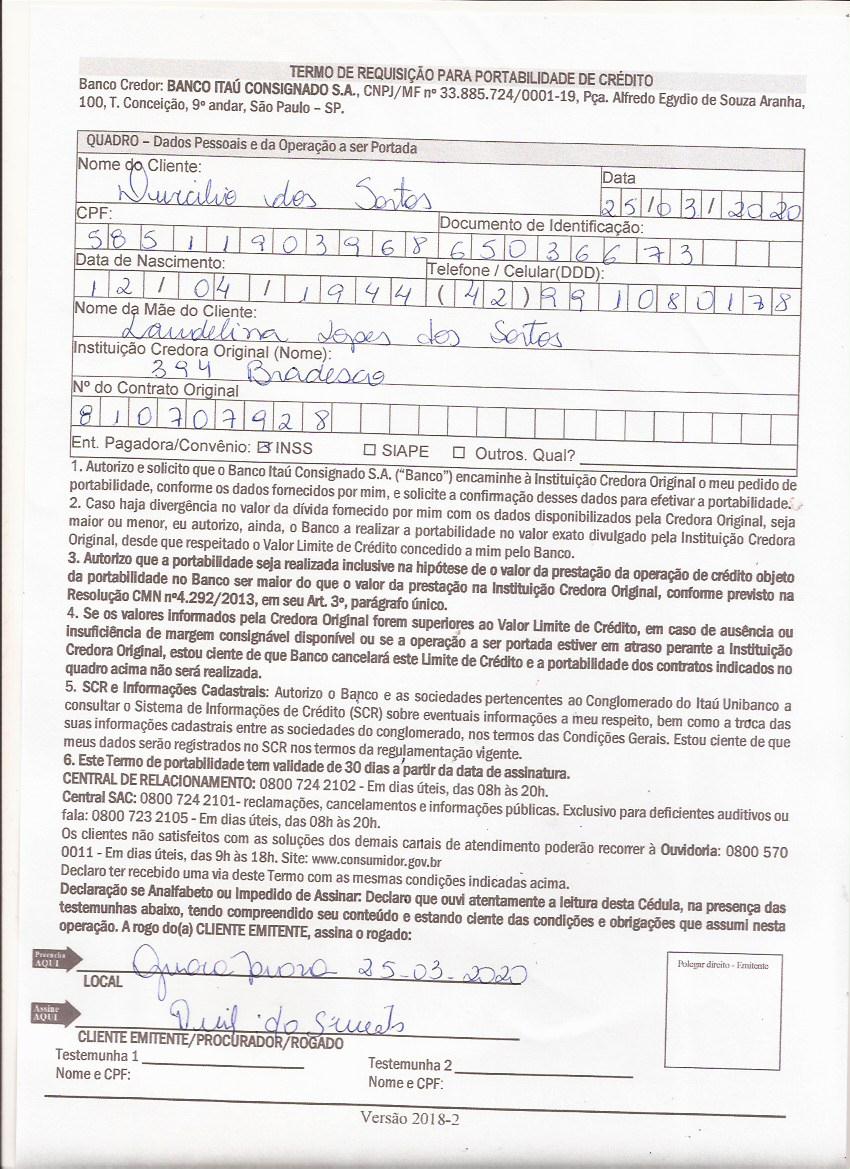 TERMO DE REQUISIÇÃO PARA PORTABILIDADE DE CRÉDITO
Banco Credor: BANCO ITAÚ CONSIGNADO S.A., CNPJ/MF nº 33.885.724/0001-19, Pça. Alfredo Egydio de Souza Aranha,
100, T. Conceição, 9º andar, São Paulo – SP.
QUADRO – Dados Pessoais e da Operação a ser Portada
Nome do Cliente:
Durcilio dos Santos
Data
25/03/2020
CPF:
58511903968
Documento de Identificação:
65036673
Data de Nascimento:
12/04/1944
Telefone / Celular(DDD):
(42)991080178
Nome da Mãe do Cliente:
Laudelina Lopes dos Santos
Instituição Credora Original (Nome):
394 Bradesco
Nº do Contrato Original
810707928
Ent. Pagadora/Convênio: ☒ INSS ☐ SIAPE ☐ Outros. Qual?
1. Autorizo e solicito que o Banco Itaú Consignado S.A. (“Banco”) encaminhe à Instituição Credora Original o meu pedido de
portabilidade, conforme os dados fornecidos por mim, e solicite a confirmação desses dados para efetivar a portabilidade.
2. Caso haja divergência no valor da dívida fornecido por mim com os dados disponibilizados pela Credora Original, seja
maior ou menor, eu autorizo, ainda, o Banco a realizar a portabilidade no valor exato divulgado pela Instituição Credora
Original, desde que respeitado o Valor Limite de Crédito concedido a mim pelo Banco.
3. Autorizo que a portabilidade seja realizada inclusive na hipótese de o valor da prestação da operação de crédito objeto
da portabilidade no Banco ser maior do que o valor da prestação na Instituição Credora Original, conforme previsto na
Resolução CMN nº4.292/2013, em seu Art. 3º, parágrafo único.
4. Se os valores informados pela Credora Original forem superiores ao Valor Limite de Crédito, em caso de ausência ou
insuficiência de margem consignável disponível ou se a operação a ser portada estiver em atraso perante a Instituição
Credora Original, estou ciente de que Banco cancelará este Limite de Crédito e a portabilidade dos contratos indicados no
quadro acima não será realizada.
5. SCR e Informações Cadastrais: Autorizo o Banco e as sociedades pertencentes ao Conglomerado do Itaú Unibanco a
consultar o Sistema de Informações de Crédito (SCR) sobre eventuais informações a meu respeito, bem como a troca das
suas informações cadastrais entre as sociedades do conglomerado, nos termos das Condições Gerais. Estou ciente de que
meus dados serão registrados no SCR nos termos da regulamentação vigente.
6. Este Termo de portabilidade tem validade de 30 dias a partir da data de assinatura.
CENTRAL DE RELACIONAMENTO: 0800 724 2102 - Em dias úteis, das 08h às 20h.
Central SAC: 0800 724 2101- reclamações, cancelamentos e informações públicas. Exclusivo para deficientes auditivos ou
fala: 0800 723 2105 - Em dias úteis, das 08h às 20h.
Os clientes não satisfeitos com as soluções dos demais canais de atendimento poderão recorrer à Ouvidoria: 0800 570
0011 - Em dias úteis, das 9h às 18h. Site: www.consumidor.gov.br
Declaro ter recebido uma via deste Termo com as mesmas condições indicadas acima.
Declaração se Analfabeto ou Impedido de Assinar: Declaro que ouvi atentamente a leitura desta Cédula, na presença das
testemunhas abaixo, tendo compreendido seu conteúdo e estando ciente das condições e obrigações que assumi nesta
operação. A rogo do(a) CLIENTE EMITENTE, assina o rogado:
Preencha
AQUI
25-03-2020
LOCAL
Polegar direito - Emitente
Assine
AQUI
CLIENTE EMITENTE/PROCURADOR/ROGADO
Testemunha 1
Nome e CPF:
Testemunha 2
Nome e CPF:
Versão 2018-2